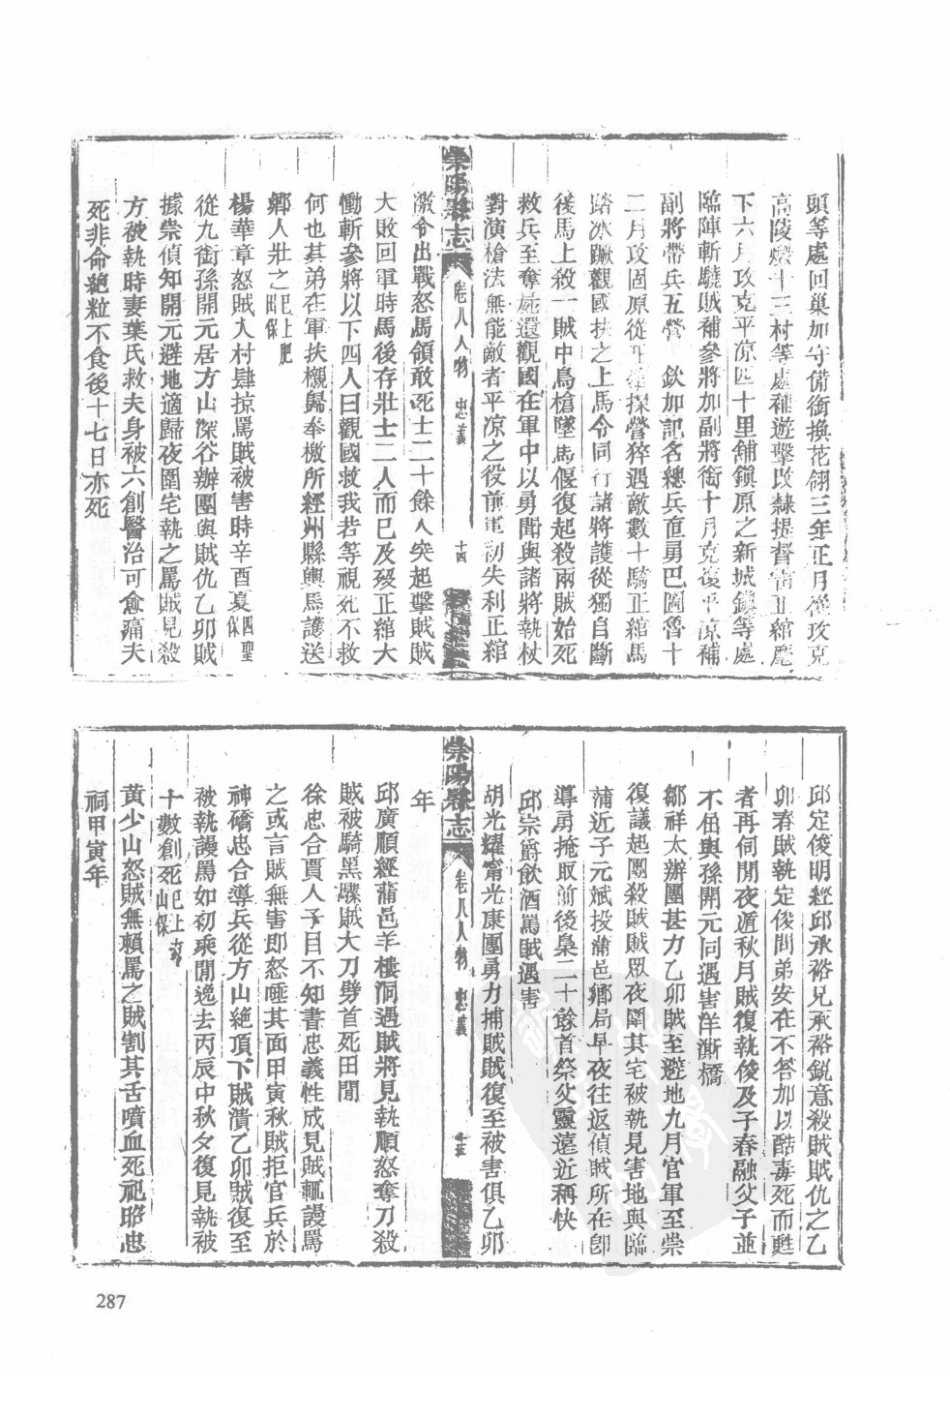 頭等處回巢加守備銜換花翎三年正月從攻克
高陵爕十三村等處補遊擊改隸提督雷正綰麾
下六月攻克平凉四十里舖鎮原之新城鎮等處
臨陣斬驍賊補參將加副將銜十月克復平凉補
副將帶兵五營 欽加記名總兵直勇巴圖魯十
二月攻固原從正綰探營猝遇敵數十騎正綰馬
踏冰蹶觀國扶之上馬令同行諸將護從獨自斷
後馬上殺一賊中鳥槍墜馬偃復起殺兩賊始死
救兵至奪屍還觀國在軍中以勇聞與諸將執杖
對演槍法無能敵者平凉之役前軍初失利正綰
崇陽縣志 卷八人物 忠義 十四
激令出戰怒馬領敢死士二十餘人突起擊賊賊
大敗回軍時馬後存壯士二人而已及歿正綰大
慟斬參將以下四人曰觀國救我若等視死不救
何也其弟在軍扶櫬歸奉檄所經州縣輿馬護送
鄉人壯之
楊華章怒賊大村肆掠罵賊被害時辛酉夏四聖保
從九銜孫開元居方山深谷辦團與賊仇乙卯賊
據崇偵知開元避地適歸夜圍宅執之罵賊見殺
方被執時妻葉氏救夫身被六創醫治可愈痛夫
死非命絕粒不食後十七日亦死
邱定俊明經邱承裕兄承裕銳意殺賊賊仇之乙
卯春賊執定俊問弟安在不答加以酷毒死而甦
者再伺閒夜遁秋月賊復執俊及子春融父子並
不屈與孫開元同遇害洋澌橋
鄒祥太辦團甚力乙卯賊至避地九月官軍至崇
復議起團殺賊賊眾夜圍其宅被執見害地與臨
蒲近子元斌投蒲邑鄉局早夜往返偵賊所在卽
導勇掩取前後梟二十餘首祭父靈遠近稱快
邱宗爵飲酒罵賊遇害
胡光耀甯光康團勇力捕賊賊復至被害俱乙卯
崇陽縣志 卷八人物 忠義 十五
年
邱廣順經蒲邑羊樓洞過賊將見執順怒奪刀殺
賊被騎黑騾賊大刀劈首死田閒
徐忠合賈人子目不知書忠義性成見賊輒謾罵
之或言賊無害即怒唾其面甲寅秋賊拒官兵於
神礄忠合導兵從方山絕頂下賊潰乙卯賊復至
被執謾罵如初乘閒逸去丙辰中秋夕復見執被
十數創死
黃少山怒賊無賴罵之賊割其舌噴血死祀昭忠
祠甲寅年
287